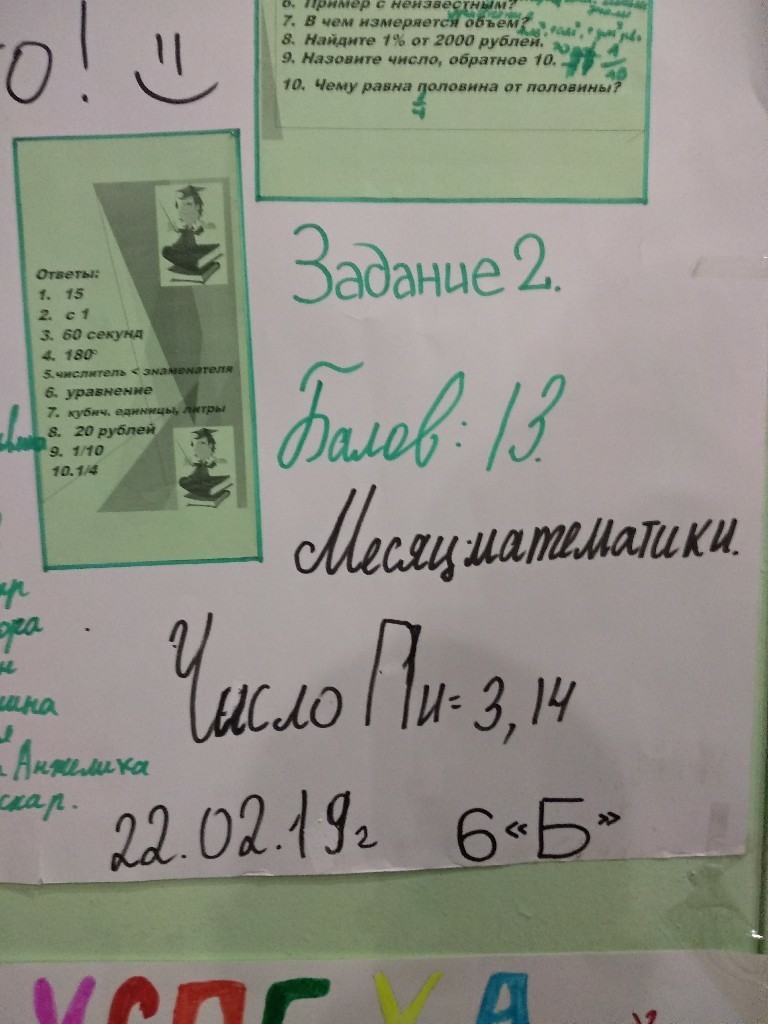 о!
6. Пример с неизвестным?
7. В чем измеряется объем?
8. Найдите 1% от 2000 рублей.
9. Назовите число, обратное 10. 1/10
10. Чему равна половина от половины?
1/4
Ответы:
1. 15
2. с 1
3. 60 секунд
4. 180°
5.числитель < знаменателя
6. уравнение
7. кубич. единицы, литры
8. 20 рублей
9. 1/10
10.1/4
Задание 2.
Балов: 13.
Месяц математики.
Число Пи = 3,14
Анжелика
скар.
22.02.19г 6 «Б»
УСПЕХА